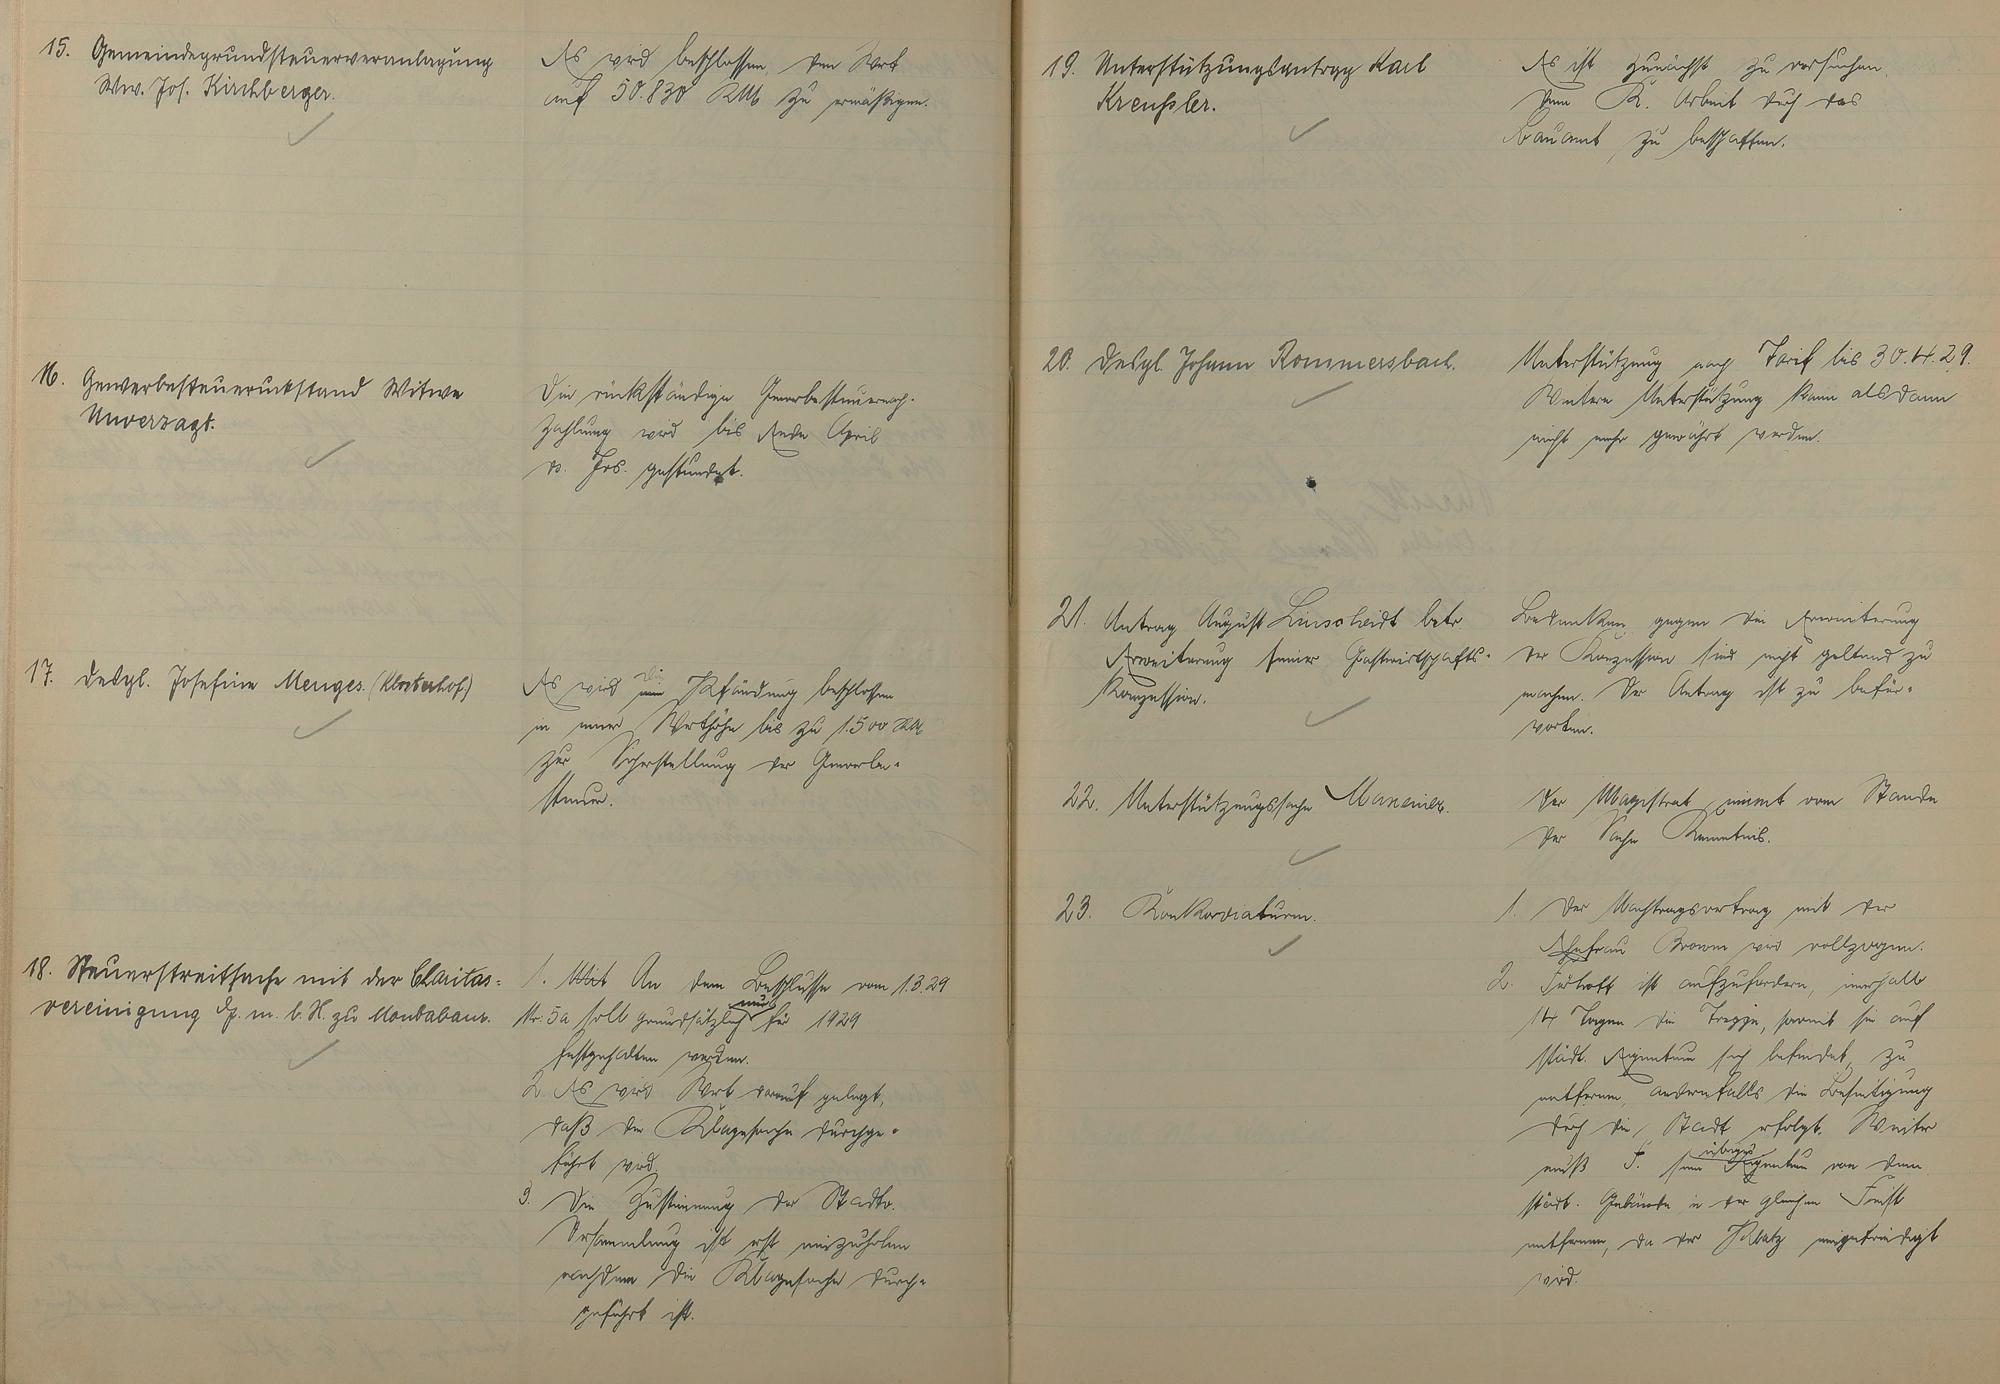 15. Gemeindegrundsteuerveranlagung
Ww. Jos. Kirchberger.
Es wird beschlossen, den Wert
auf 50.830 RM zu ermäßigen.
16. Gewerbesteuerrückstand Witwe
Unverzagt.
Die rückständige Gewerbesteuernach-
zahlung wird bis Ende April
d. Jrs. gestundet.
17. Desgl. Josefine Menges. (Klosterhof)
Es wird eine die Pfändung beschlossen
in einer Werthöhe bis zu 1.500 RM
zur Sicherstellung der Gewerbe-
steuer.
18. Steuerstreitsache mit der Charitas-
vereinigung G. m. b. H. zu Montabaur.
1. Mit An dem Beschlusse vom 1.3.29
Nr. 5a soll grundsätzlich nur für 1929
festgehalten werden.
2. Es wird Wert darauf gelegt,
daß die Klagesache durchge-
führt wird.
3. Die Zustimmung der Stadtv.
Versammlung ist erst einzuholen
nachdem die Klagesache durch-
geführt ist.
19. Unterstützungsantrag Karl
Kreußler.
Es ist zunächst zu versuchen,
dem K. Arbeit durch das
Bauamt zu beschaffen.
20. Desgl. Johann Rommersbach.
Unterstützung nach Tarif bis 30.4.29.
Weitere Unterstützung kann alsdann
nicht mehr gewährt werden.
21. Antrag August Linscheidt betr.
Erweiterung seiner Gastwirtschafts-
konzession.
Bedenken gegen die Erweiterung
der Konzession sind nicht geltend zu
machen. Der Antrag ist zu befür-
worten.
22. Unterstützungssache
Der Magistrat nimmt vom Stande
der Sache Kenntnis.
23. Konkordiaturm.
1. Der Nachtragsvertrag mit der
Ehefrau wird vollzogen.
2. ist aufzufordern, innerhalb
14 Tagen die Treppe, soweit sie auf
städt. Eigentum sich befindet, zu
entfernen, andernfalls die Beseitigung
durch die Stadt erfolgt. Weiter
muß F. sein übriges Eigentum von dem
städt. Gebäude in der gleichen Frist
entfernen, da der Platz eingefriedigt
wird.